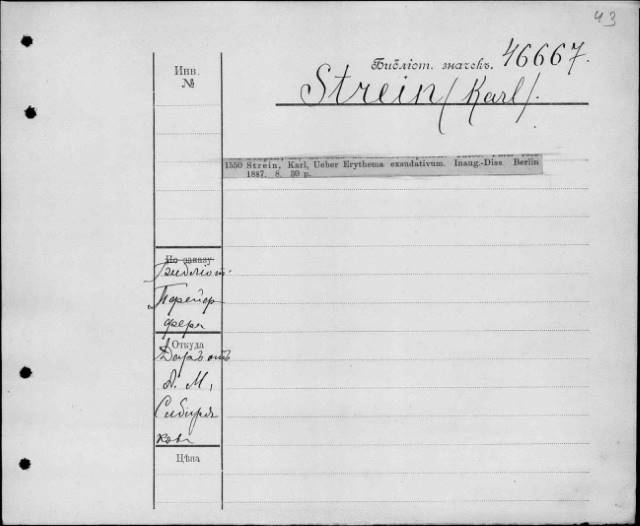 43
Библіот. значекъ. 46667.
Инв.
№
Strein (Karl).
1550 Strein, Karl, Ueber Erythema exsudativum. Inaug.-Diss Berlin
1887. 8. 30 p.
По заказу
Библіот.
Порейор
фера
Откуда
Даръ отъ
А. М,
Сибиря
кова
Цѣна